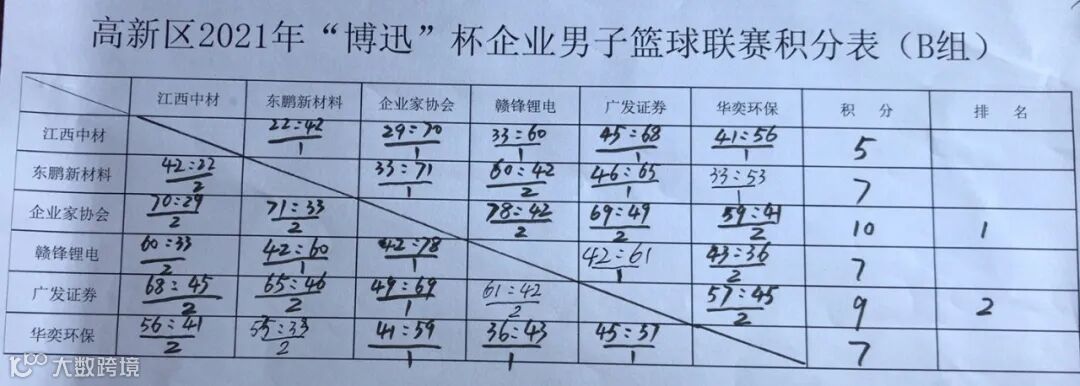 高新区2021年“博迅”杯企业男子篮球联赛积分表（B组）
江西中材 东鹏新材料 企业家协会 赣锋锂电 广发证券 华奕环保 积分 排名
江西中材 22:42 1 29:70 1 33:60 1 45:68 1 41:56 1 5
东鹏新材料 42:22 2 33:71 1 60:42 2 46:65 1 33:53 1 7
企业家协会 70:29 2 71:33 2 78:42 2 69:49 2 59:41 2 10 1
赣锋锂电 60:33 2 42:60 1 42:78 1 42:61 1 43:36 2 7
广发证券 68:45 2 65:46 2 49:69 1 61:42 2 57:45 2 9 2
华奕环保 56:41 2 :33 2 41:59 1 36:43 1 45:57 1 7
大数跨境